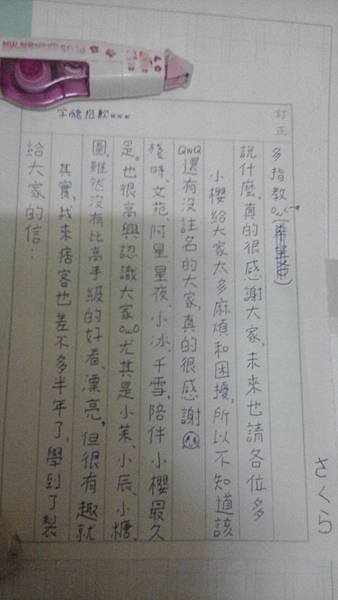 給大家的信:
其實,我來痞客也差不多半年了,學到了製
圖,雖然沒有比高手級的好看、漂亮,但很有趣就
是。也很高興認識大家OwO尤其是小茉、小辰、小糖、
殘時、文苑、阿星星夜、小冰、千雪,陪伴小櫻最久
QWQ還有沒註名的大家,真的很感謝
小櫻給大家太多麻煩和困擾,所以不知道該
說什麼,真的很感謝大家,未來也請各位多
多指教
さくら
訂正
字醜抱歉www
PLUS